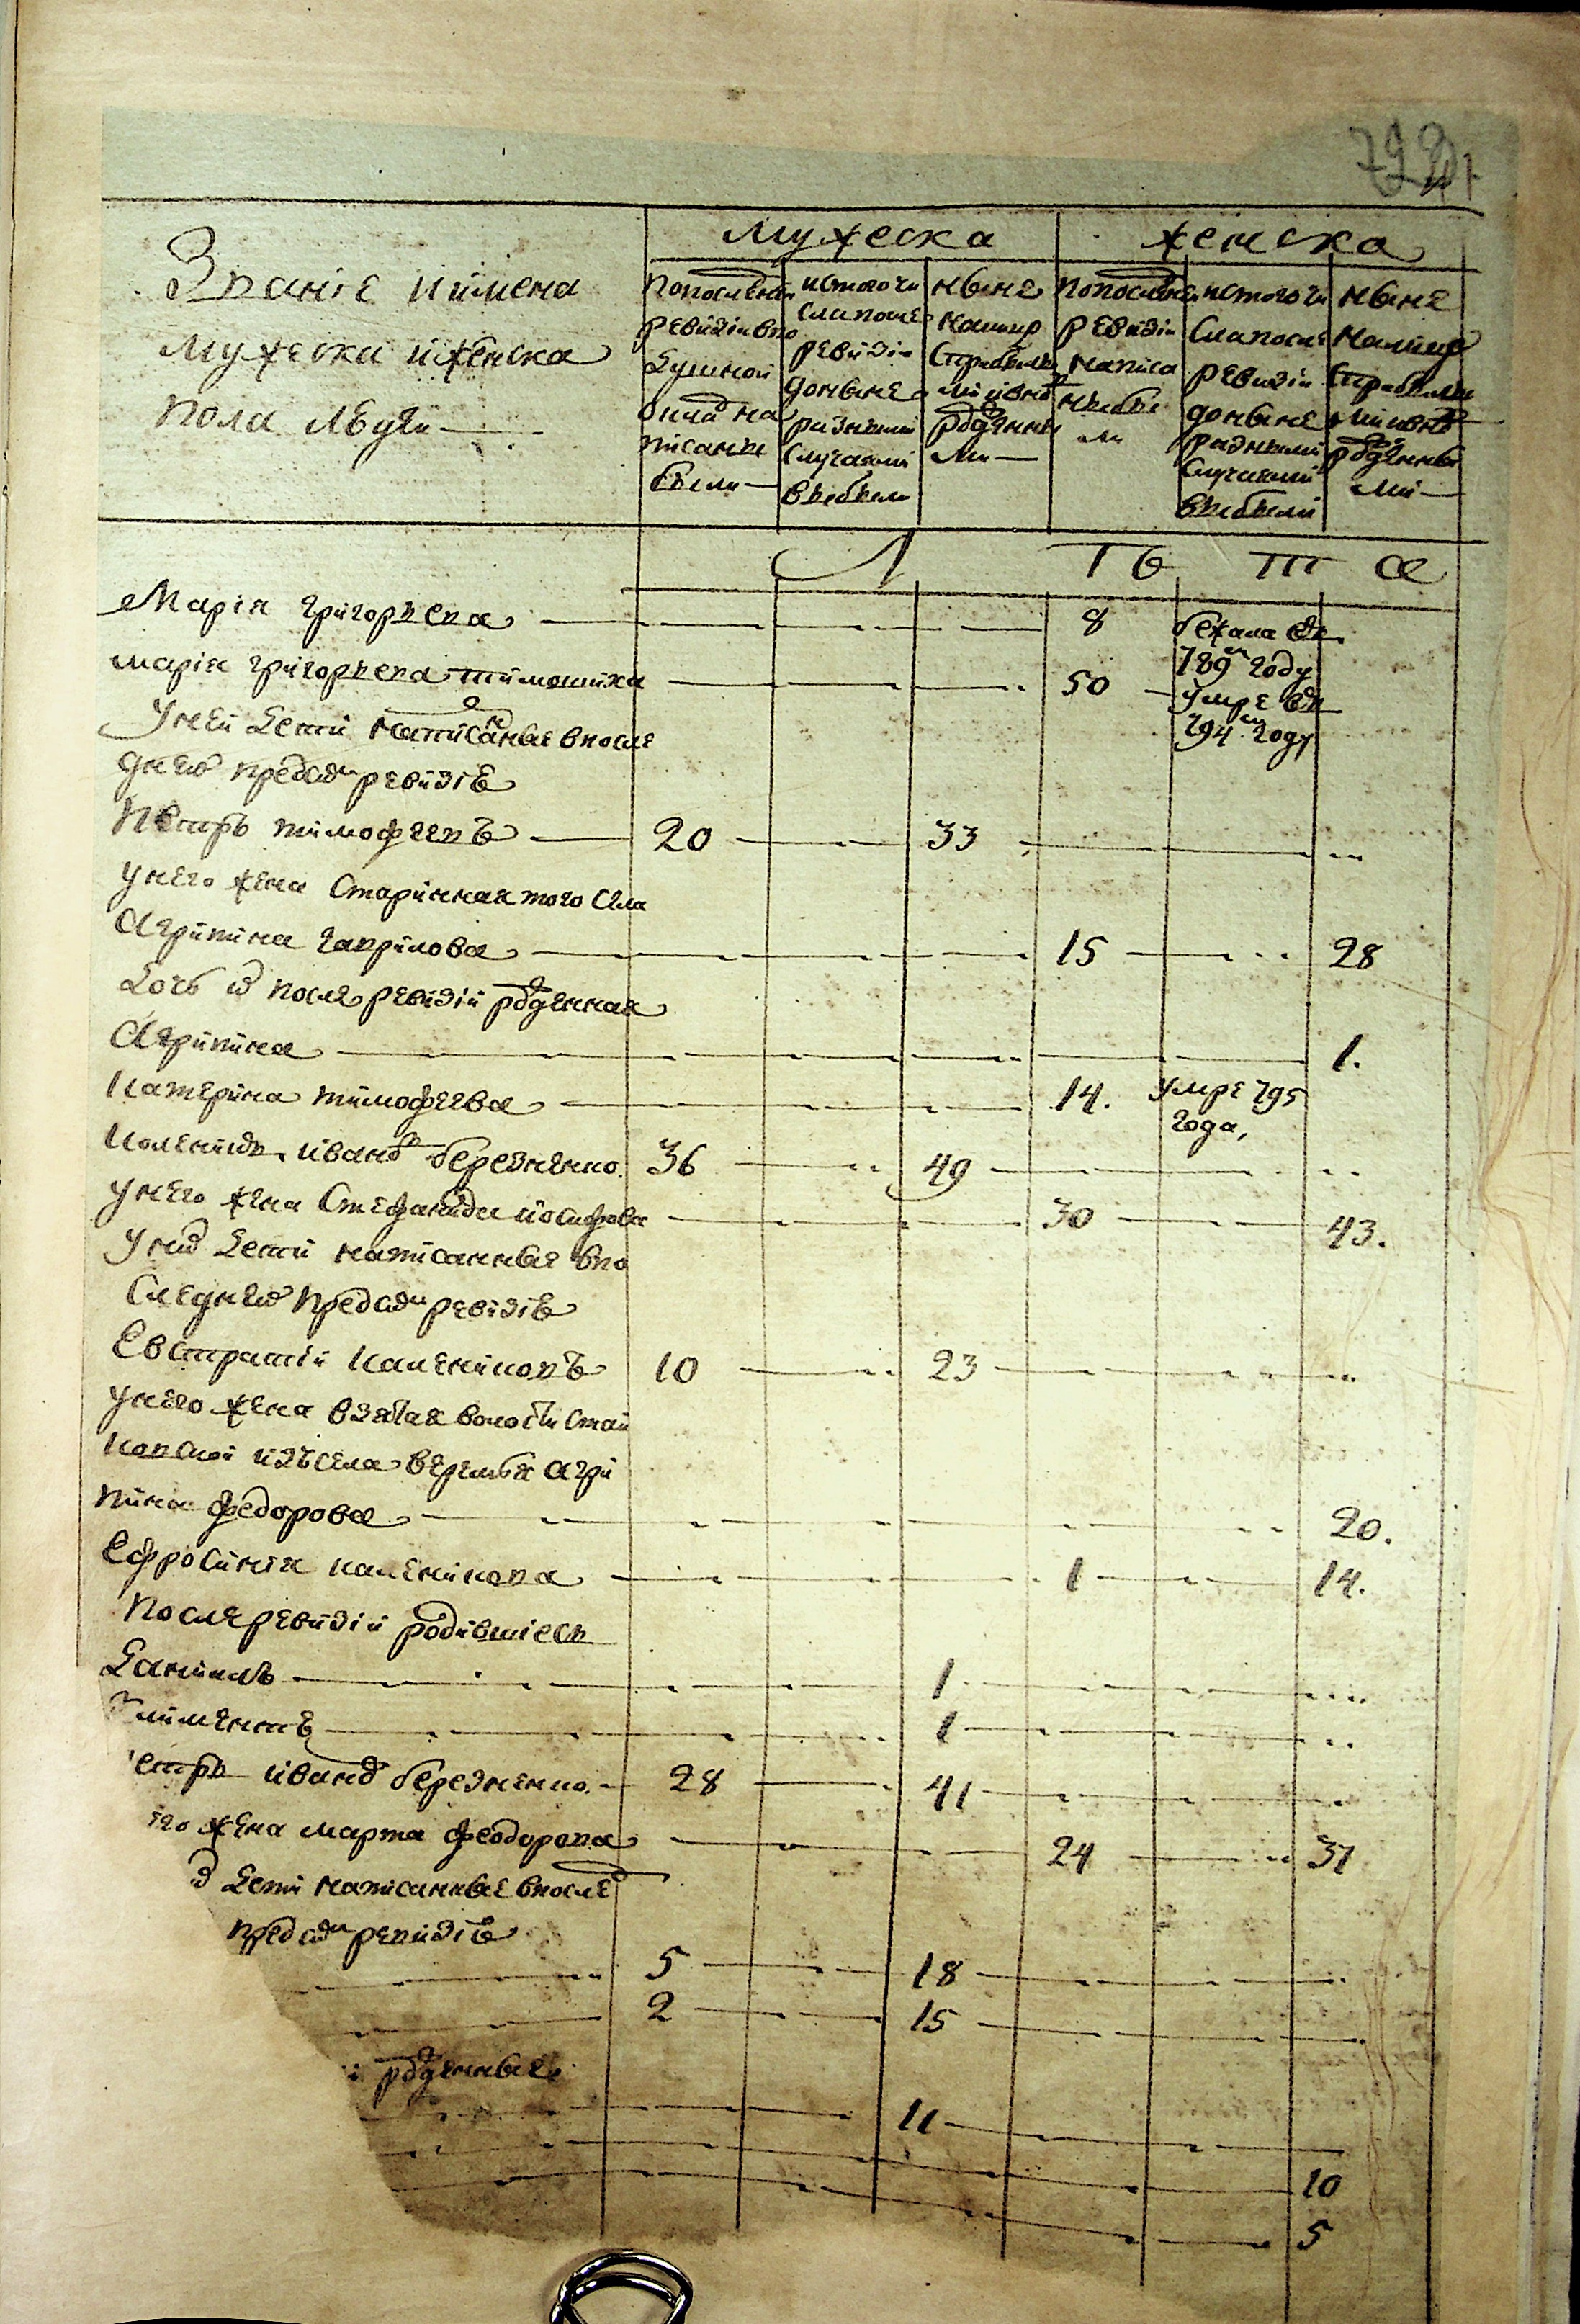 Званіе иимена
мужеска иженска
пола людей
мужеска
женска
попоследнеи
ревизіи впо
душной
окладъ на
писаны
были
истого чи
сла после
ревизіи
доныне
разными
случаями
выбыли
ныне
налицо
съ прибылы
ми ивновь
рожденны
ми
попоследней
ревизіи
написа
ны бы
ли
истого чи
сла после
ревизіи
доныне
разными
случаями
выбыли
ныне
налицо
съ прибылы
ми ивновь
рожденны
ми
Л Т в т а
Марія григорьева 8 бежала въ
789м году
марія григорьева тимошиха 50 умре въ
794м году
унеи дети написанные впосле
днеи пред сим ревизіе
Петръ тимофеевъ 20 33
унего жена старинная того села
Агрипина гаврилова 15 28
дочь их после ревизіи рожденная
Агрипина 1.
Катерина тимофеева 14. умре 795
года,
Каленикъ, иванов березненко. 36 49
унего жена Стефанида иосифова 30 43.
уних дети написанные впо
следнеи пред сим ревизіе
Евстратіи калениковъ 10 23
унего жена взятая волости Стаи
ковскои изъ села веремья агри
пина федорова 20.
Ефросинія каленикова 1 14.
после ревизіи родившіесь
Данилъ 1
лиментъ 1
етръ иванов березненко. 28 41
его жена марта феодорова 24 37
х дети написанные впослед
пред сим ревизіе
5 18
2 15
и рожденные
11
10
5